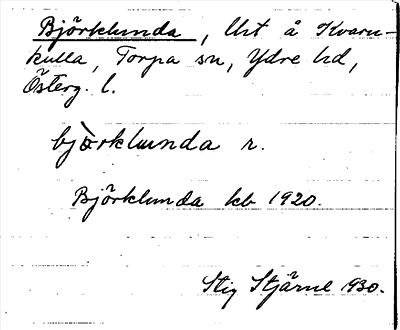 Björklunda, Urt å Kvarn-
kulla, Torpa sn, Ydre hd,
Österg. l.
björklunda r.
Björklunda kb 1920.
Stig Stjärne 1930.